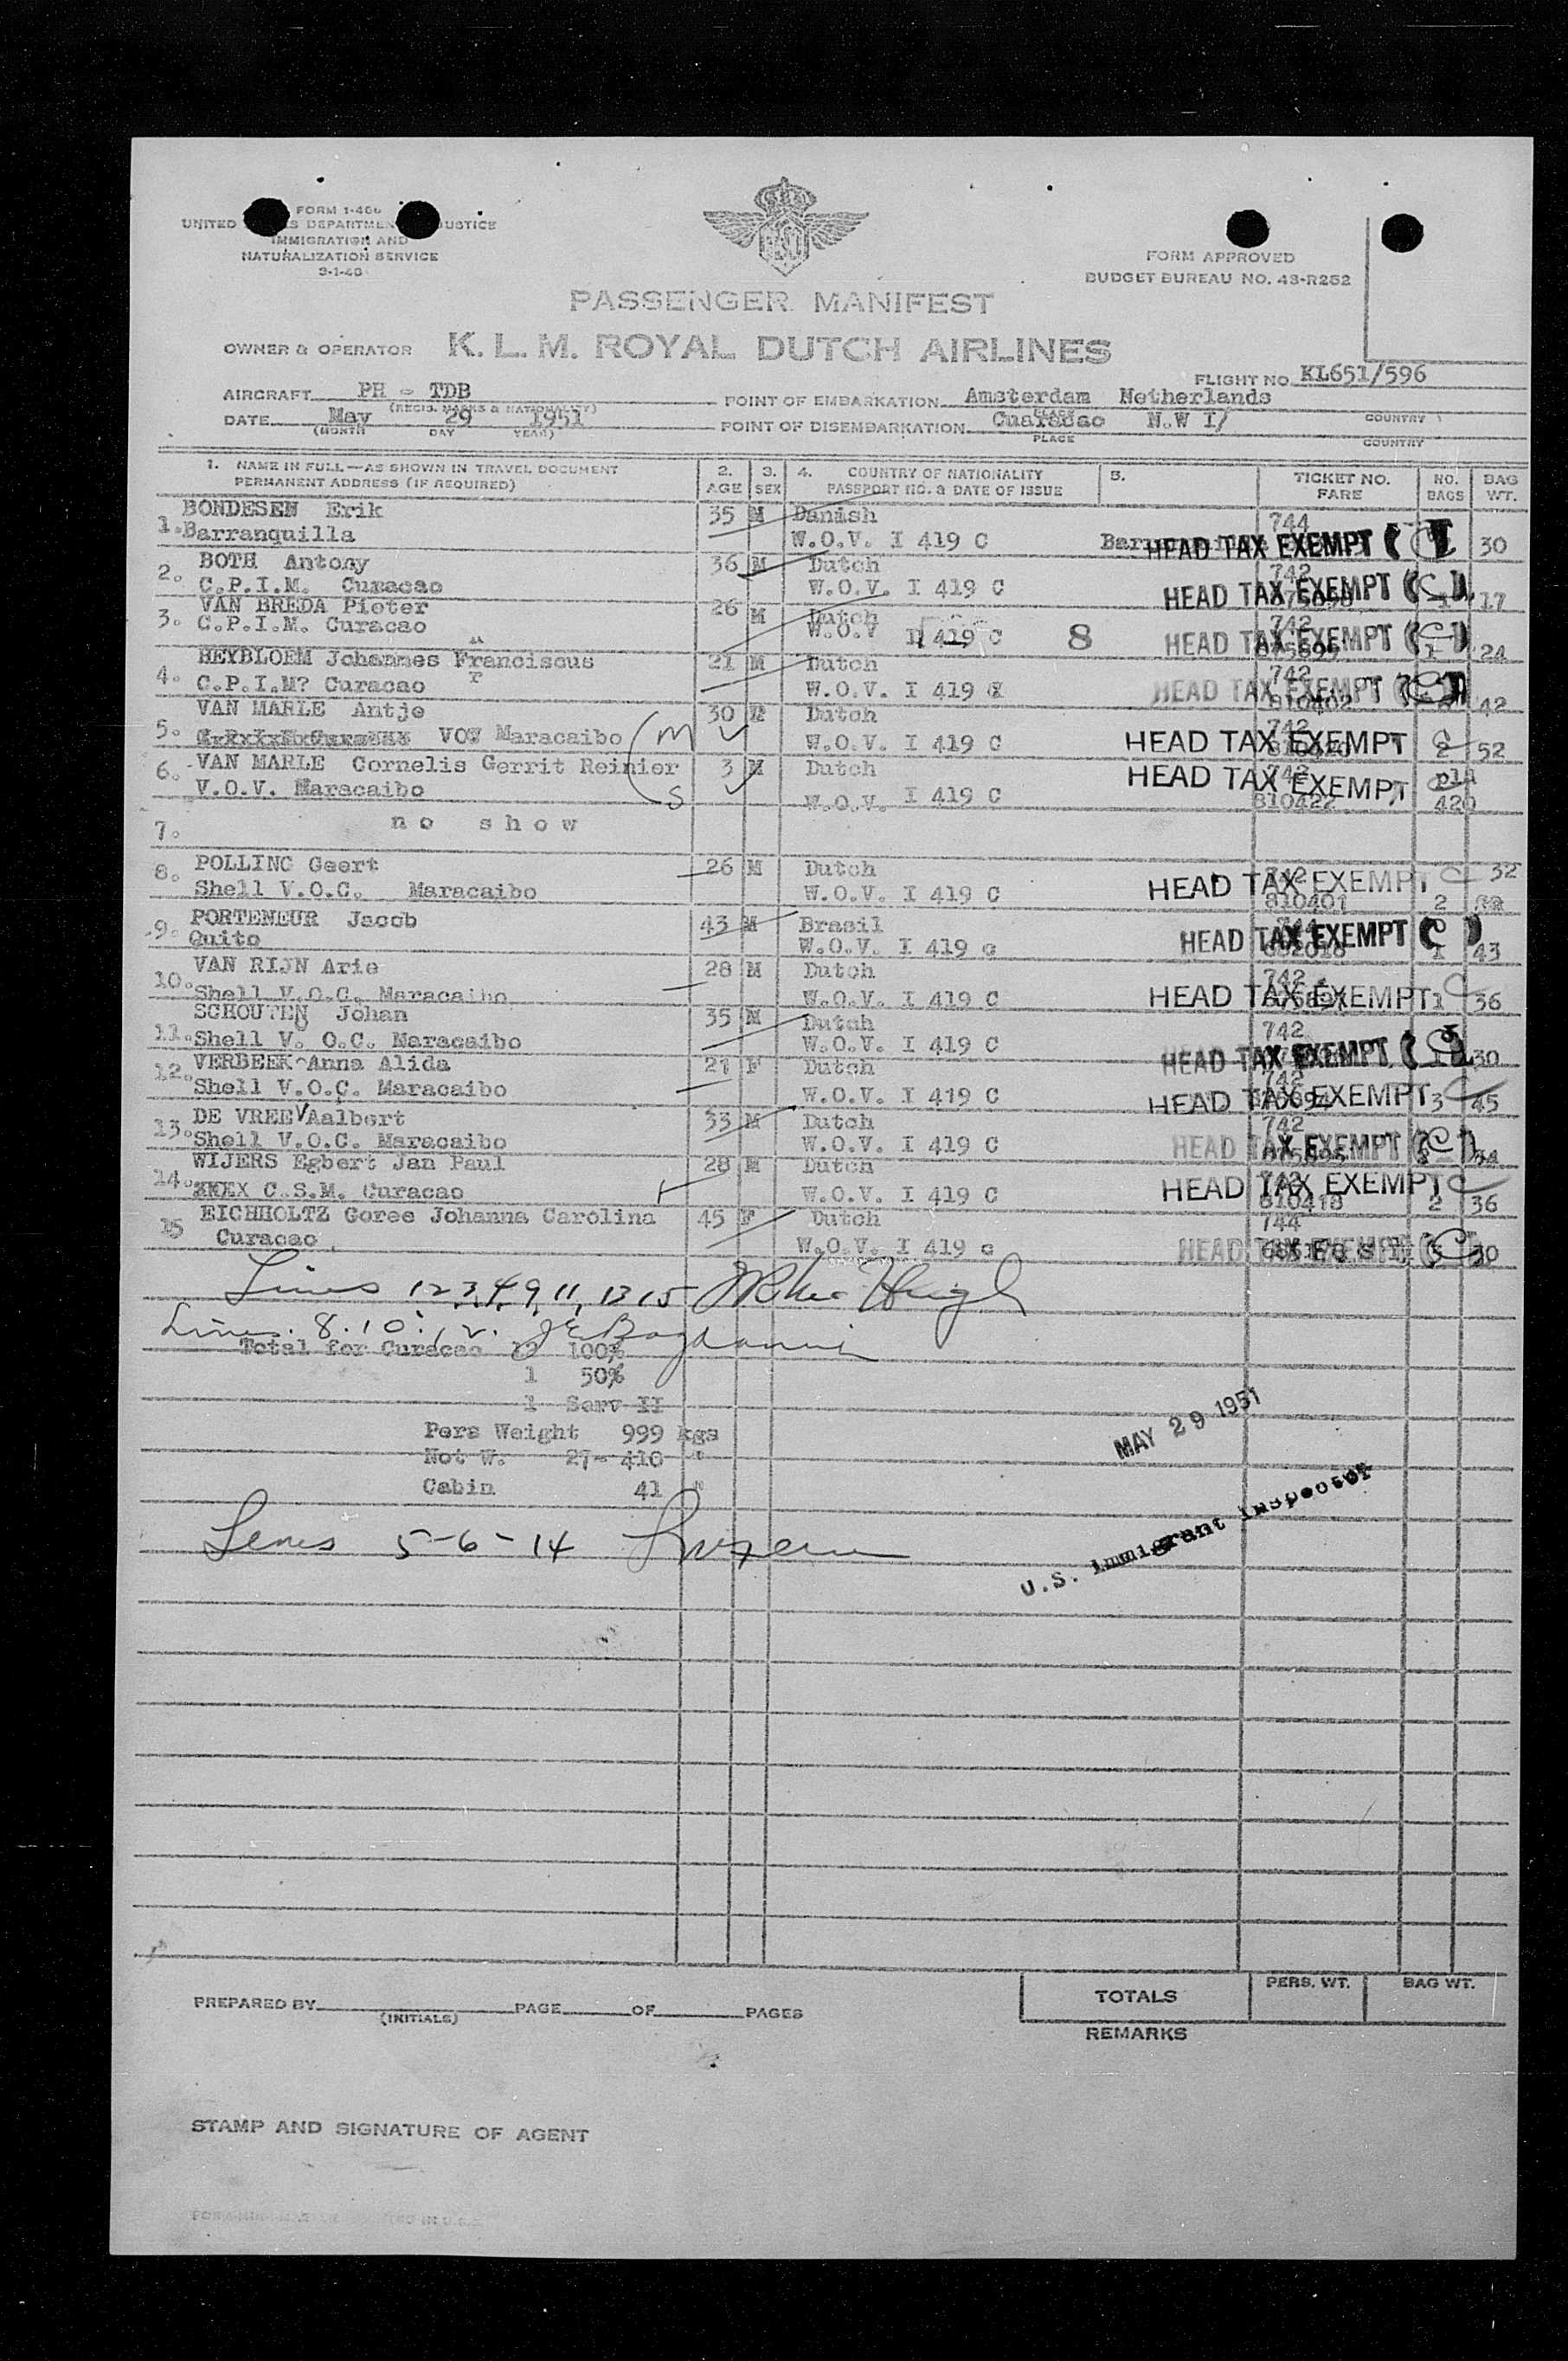 FORM 1-466
UNITED STATES DEPARTMENT OF JUSTICE
IMMIGRATION AND
NATURALIZATION SERVICE
3-1-48
FORM APPROVED
BUDGET BUREAU NO. 43-R252
PASSENGER MANIFEST
OWNER & OPERATOR K. L. M. ROYAL DUTCH AIRLINES
FLIGHT NO. KL651/596
AIRCRAFT PH - TDB
(REGIS. MARKS & NATIONALITY)
POINT OF EMBARKATION Amsterdam Netherlands
PLACE COUNTRY
DATE May 29 1951
(MONTH DAY YEAR)
POINT OF DISEMBARKATION N.W I/
PLACE COUNTRY
1. NAME IN FULL—AS SHOWN IN TRAVEL DOCUMENT
PERMANENT ADDRESS (IF REQUIRED)
2. AGE
3. SEX
4. COUNTRY OF NATIONALITY
PASSPORT NO. & DATE OF ISSUE
5.
TICKET NO.
FARE
NO. BAGS
BAG WT.
BONDESEN Erik 35 M Danish 744
1. Barranquilla W.O.V. I 419 C HEAD TAX EXEMPT 30
BOTH Antony 36 M Dutch 742
2. C.P.I.M. Curacao W.O.V. I 419 C HEAD TAX EXEMPT 1 17
VAN BREDA Pieter 26 M Dutch 742
3. C.P.I.M. Curacao W.O.V I 419 C 8 HEAD TAX EXEMPT 1 24
HEYBLOEM Johannes Franciscus 21 M Dutch 742
4. C.P.I.M? Curacao W.O.V. I 419 HEAD TAX EXEMPT 810402 42
VAN MARLE Antje 30 Dutch 742
5. VOV Maracaibo (M W.O.V. I 419 C HEAD TAX EXEMPT 2 52
6. VAN MARLE Cornelis Gerrit Reinier 3 M Dutch 742 HEAD TAX EXEMPT
V.O.V. Maracaibo S W.O.V. I 419 C 810422 420
7. no show
8. POLLING Geert 26 M Dutch 742 C 32
Shell V.O.C. Maracaibo W.O.V. I 419 C HEAD TAX EXEMPT 810401 2
PORTENEUR Jacob 43 M Brasil 744
9. Quito W.O.V. I 419 c HEAD TAX EXEMPT 1 43
VAN RIJN Arie 28 M Dutch 742
10. Shell V.O.C. Maracaibo W.O.V. I 419 C HEAD TAX EXEMPT 1 C 36
SCHOUTEN Johan 35 M Dutch 742
11. Shell V. O.C. Maracaibo W.O.V. I 419 C HEAD TAX EXEMPT 30
VERBEEK Anna Alida 21 F Dutch 742
12. Shell V.O.C. Maracaibo W.O.V. I 419 C HEAD TAX EXEMPT 3 C 45
DE VREE Aalbert 33 M Dutch 742
13. Shell V.O.C. Maracaibo W.O.V. I 419 C HEAD TAX EXEMPT
WIJERS Egbert Jan Paul 28 M Dutch 742
14. C.S.M. Curacao W.O.V. I 419 C HEAD TAX EXEMPT 810418 2 C 36
EICHHOLTZ Goree Johanna Carolina 45 F Dutch 744
15 Curacao W.O.V. I 419 c HEAD TAX EXEMPT 30
Lines 1 2 3, 4, 9, 11, 13 15
Lines. 8. 10. 12.
Total for Curacao 12 100%
1 50%
1 Serv II
Pers Weight 999 kgs
Not W. 27- 410 "
Cabin 41 "
MAY 29 1951
U.S. Immigrant Inspector
Lines 5-6-14
PREPARED BY (INITIALS) PAGE OF PAGES
TOTALS
PERS. WT.
BAG WT.
REMARKS
STAMP AND SIGNATURE OF AGENT